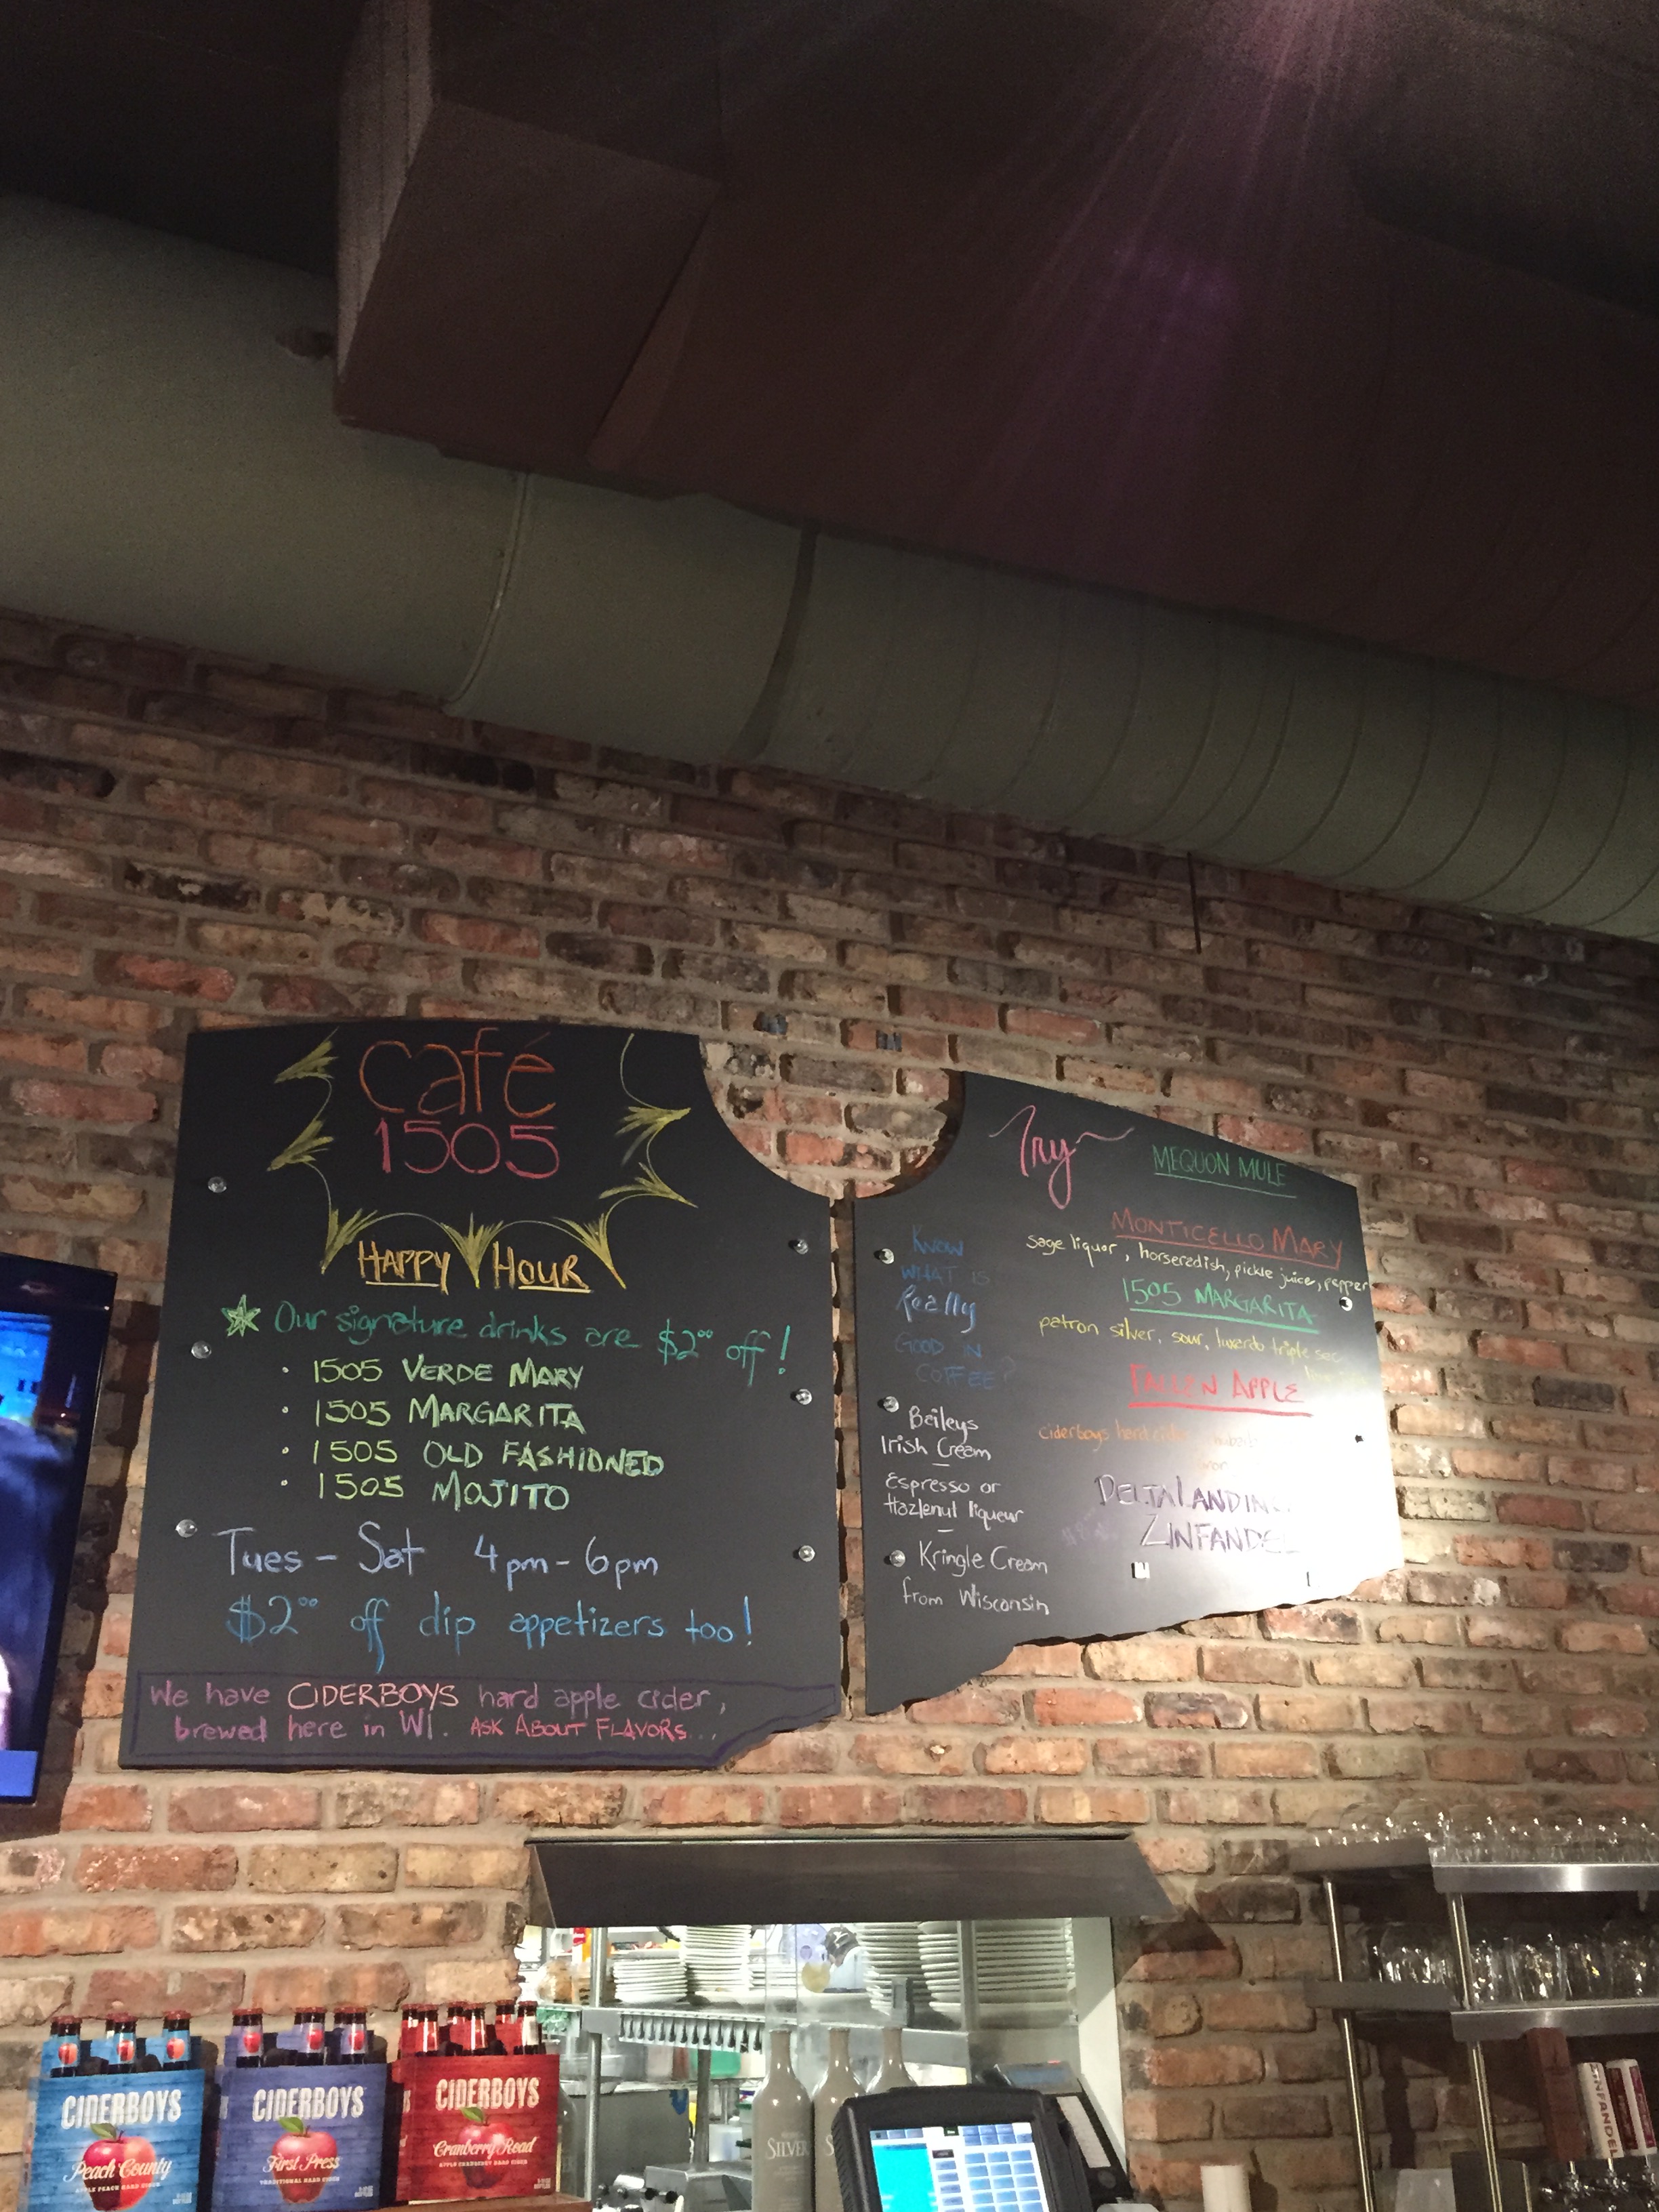 café
1505
HAPPY HOUR
Our signature drinks are $2⁰⁰ off!
• 1505 VERDE MARY
• 1505 MARGARITA
• 1505 OLD FASHIONED
• 1505 MOJITO
Tues - Sat 4pm - 6pm
$2⁰⁰ off dip appetizers too!
We have CIDERBOYS hard apple cider,
brewed here in WI. ASK ABOUT FLAVORS...
Try
KNOW
WHAT IS
Really
GOOD IN
COFFEE?
Baileys
Irish Cream
—
Espresso or
Hazlenut liqueur
—
Kringle Cream
from Wisconsin
MEQUON MULE
MONTICELLO MARY
sage liquor, horseredish, pickle juice, pepper
1505 MARGARITA
patron silver, sour, luxardo triple sec
FALLEN APPLE
ciderboys hard cider
DELTA LANDING
ZINFANDEL
CIDERBOYS
Peach County
APPLE PEACH HARD CIDER
CIDERBOYS
First Press
TRADITIONAL HARD CIDER
CIDERBOYS
Cranberry Road
APPLE CRANBERRY HARD CIDER
SILVER